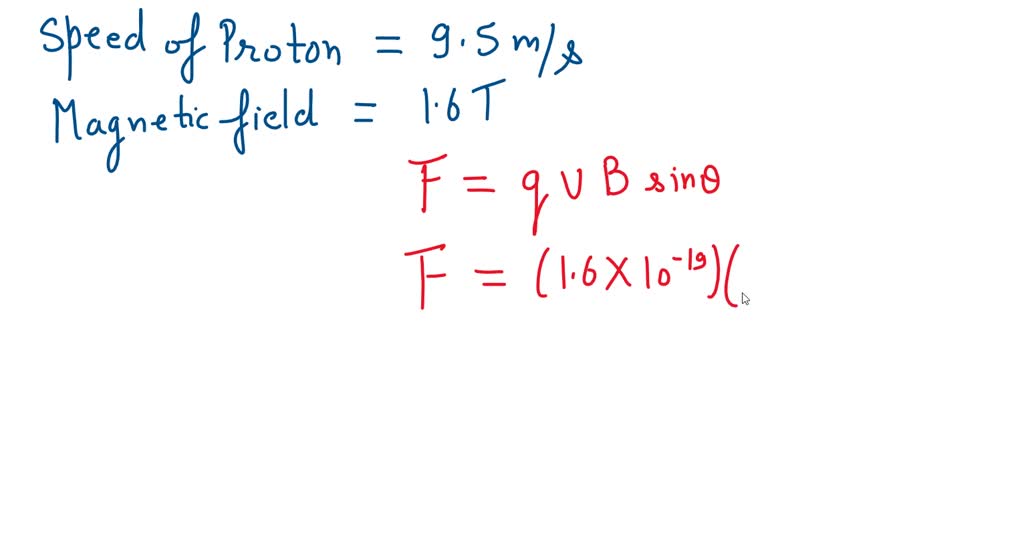 Speed of Proton = 9.5 m/s
Magnetic field = 1.6 T
F = q v B sinθ
F = (1.6 X 10⁻¹⁹)(